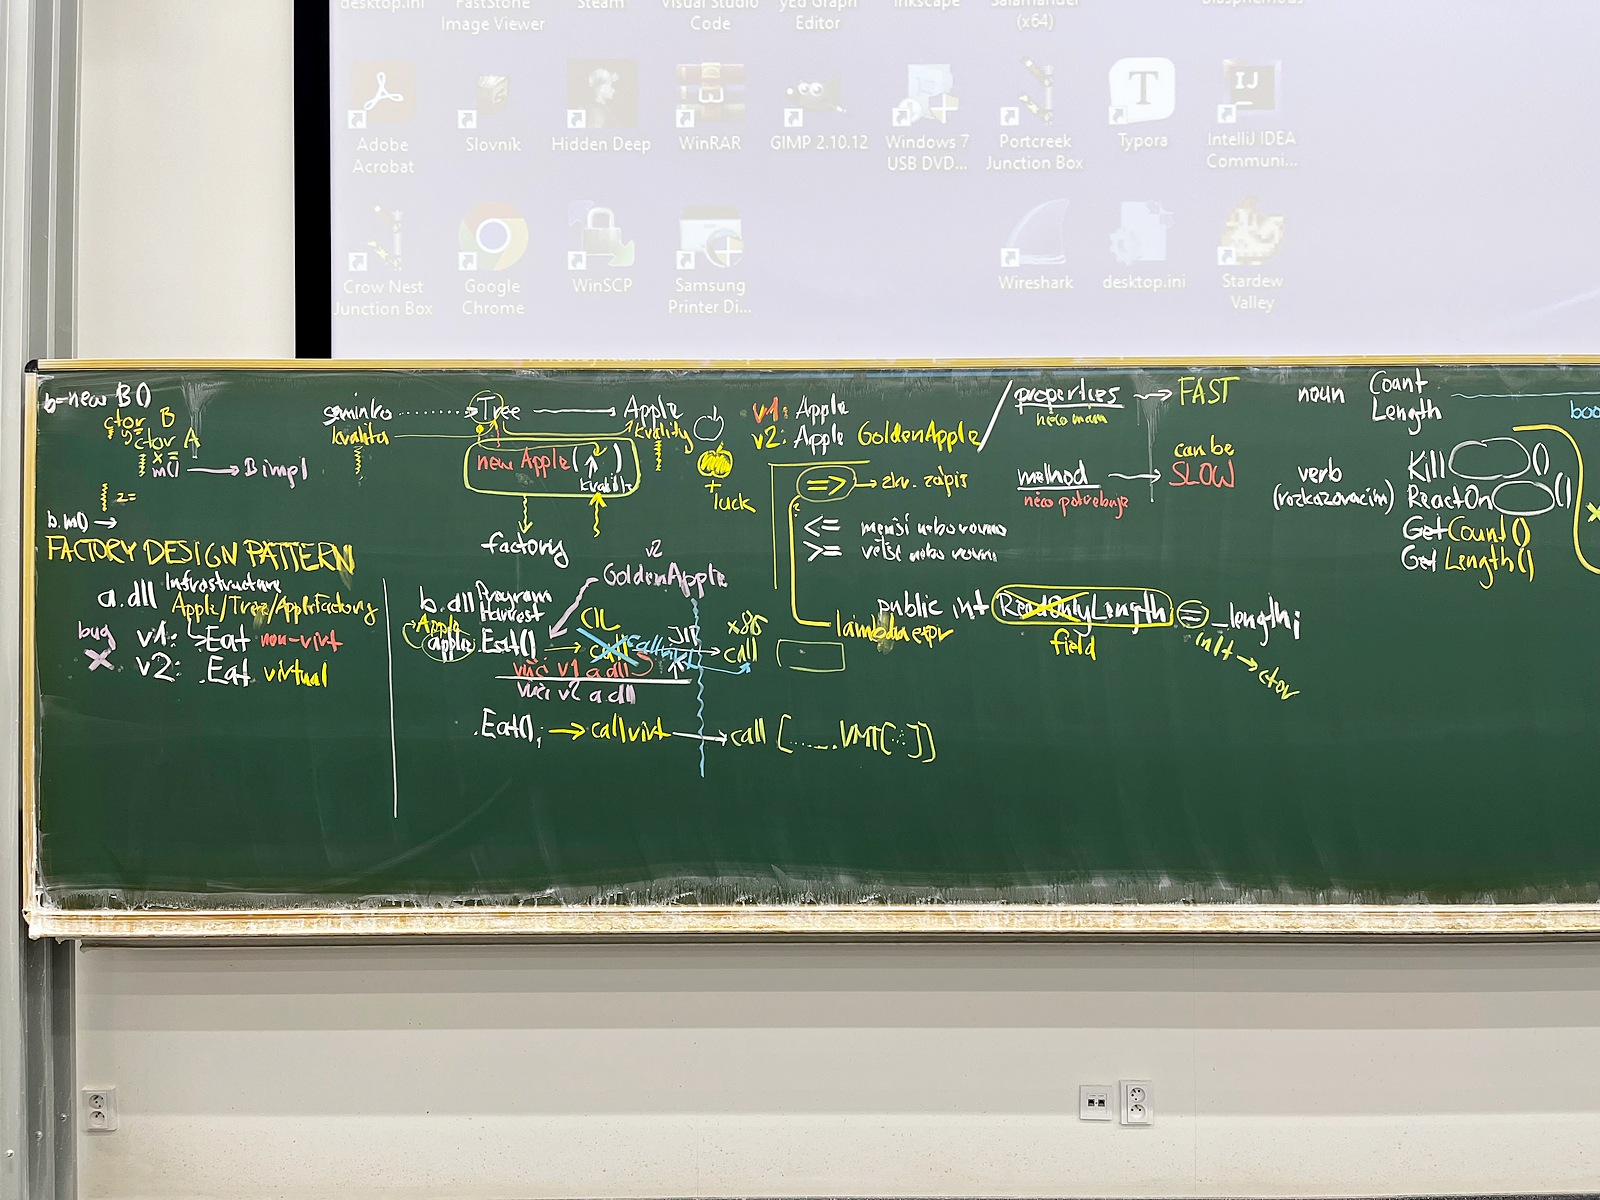 desktop.ini
FastStone
Image Viewer
Steam
Visual Studio
Code
yEd Graph
Editor
Inkscape
Salamander
(x64)
Blasphemous
Adobe
Acrobat
Slovník
Hidden Deep
WinRAR
GIMP 2.10.12
Windows 7
USB DVD...
Portcreek
Junction Box
Typora
IntelliJ IDEA
Communi...
Crow Nest
Junction Box
Google
Chrome
WinSCP
Samsung
Printer Di...
Wireshark
desktop.ini
Stardew
Valley
b=new B()
ctor B
ctor A
x=
m() → B impl
2=
b.m() →
semínko → Tree → Apple
kvalita
kvality
new Apple( )
factory
+ luck
v1: Apple
v2: Apple GoldenApple
=> → zkr. zápis
<= menší nebo rovno
>= větší nebo rovno
lambda expr
properties → FAST
něco mám
method → can be
SLOW
něco potřebuje
noun
Count
Length
verb
(rozkazovacím)
Kill ()
ReactOn ()
GetCount()
GetLength()
boo
public int ReadOnlyLength = _length;
field
init → ctor
FACTORY DESIGN PATTERN
a.dll Infrastructure
Apple/Tree/AppleFactory
bug
v1: .Eat non-virt
v2: .Eat virtual
b.dll Program
Harvest
v2
GoldenApple
Apple
apple .Eat() → CIL
call callvirt JIT → x86
call
vůči v1 a.dll
vůči v2 a.dll
.Eat(); → callvirt → call [......VMT[..]]